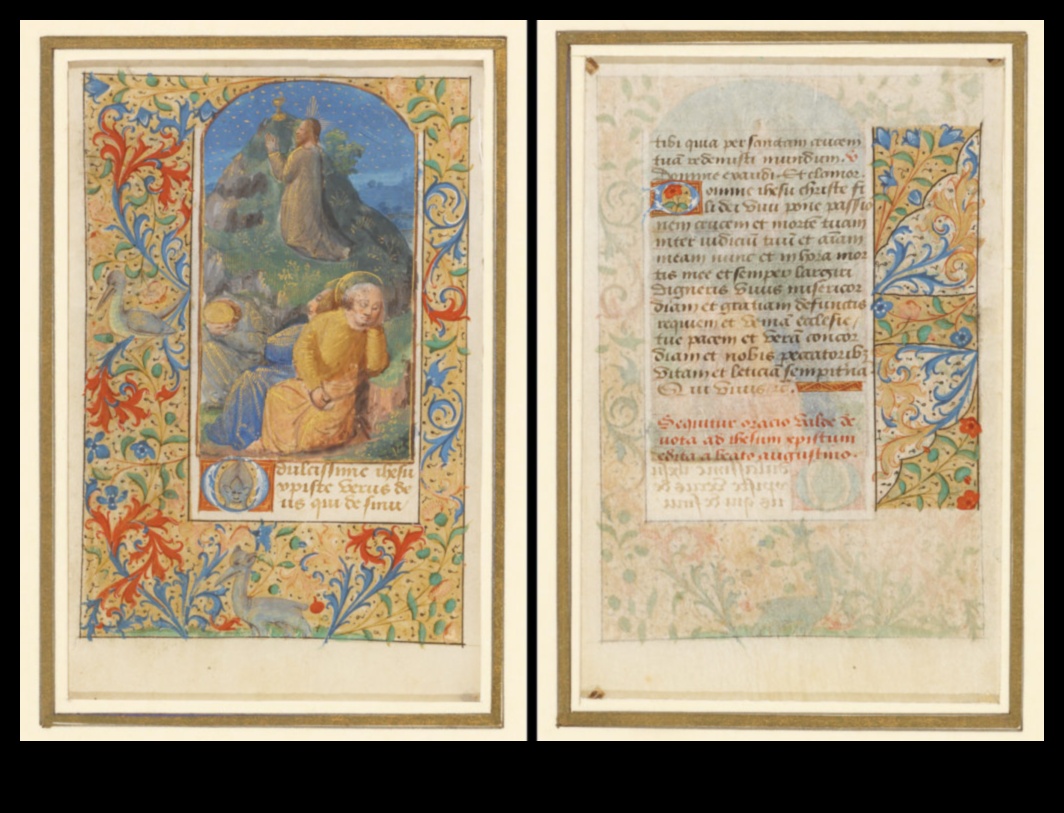 dulcissime ihesu
xpiste verus de
us qui de sinu
tibi quia per sanctam crucem
tuā redemisti mundum. v
Domine exaudi. Et clamor.
Domine ihesu christe fi
li dei vivi pone passio
nem crucem et mortē tuam
inter iudiciū tuū et aīam
meam nunc et in hora mor
tis mee et semper largiri
digneris vivis misericor
diam et gratiam defunctis
requiem et veniā ecclesie
tue pacem et verā concor
diam et nobis peccatoribꝫ
vitam et leticiā sempit̄na
Qui vivis
Sequitur oracio valde de
vota ad ihesum xpistum
edita a beato augustino.